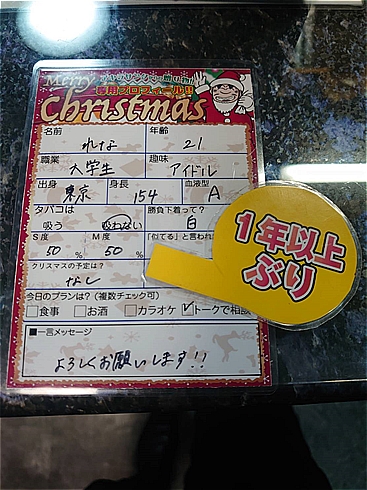 Merry
専用プロフィール!!
Christmas
名前 れな 年齢 21
職業 大学生 趣味 アイドル
出身 東京 身長 154 血液型 A
タバコは 勝負下着って?
吸う 吸わない 白
S度 M度 「似てる」と言われ
50% 50%
クリスマスの予定は?
なし
今日のプランは?(複数チェック可)
□食事 □お酒 □カラオケ ☑トークで相談
■一言メッセージ
よろしくお願いします!!
1年以上
ぶり